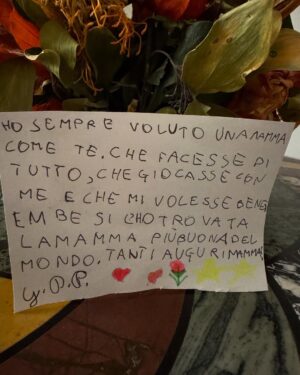 HO SEMPRE VOLUTO UNA MAMMA
COME TE, CHE FACESSE DI
TUTTO, CHE GIOCASSE CON
ME E CHE MI VOLESSE BENE,
EMBE SI L'HO TROVATA
LA MAMMA PIÙ BUONA DEL
MONDO, TANTI AUGURI MAMMA
y. P. P.